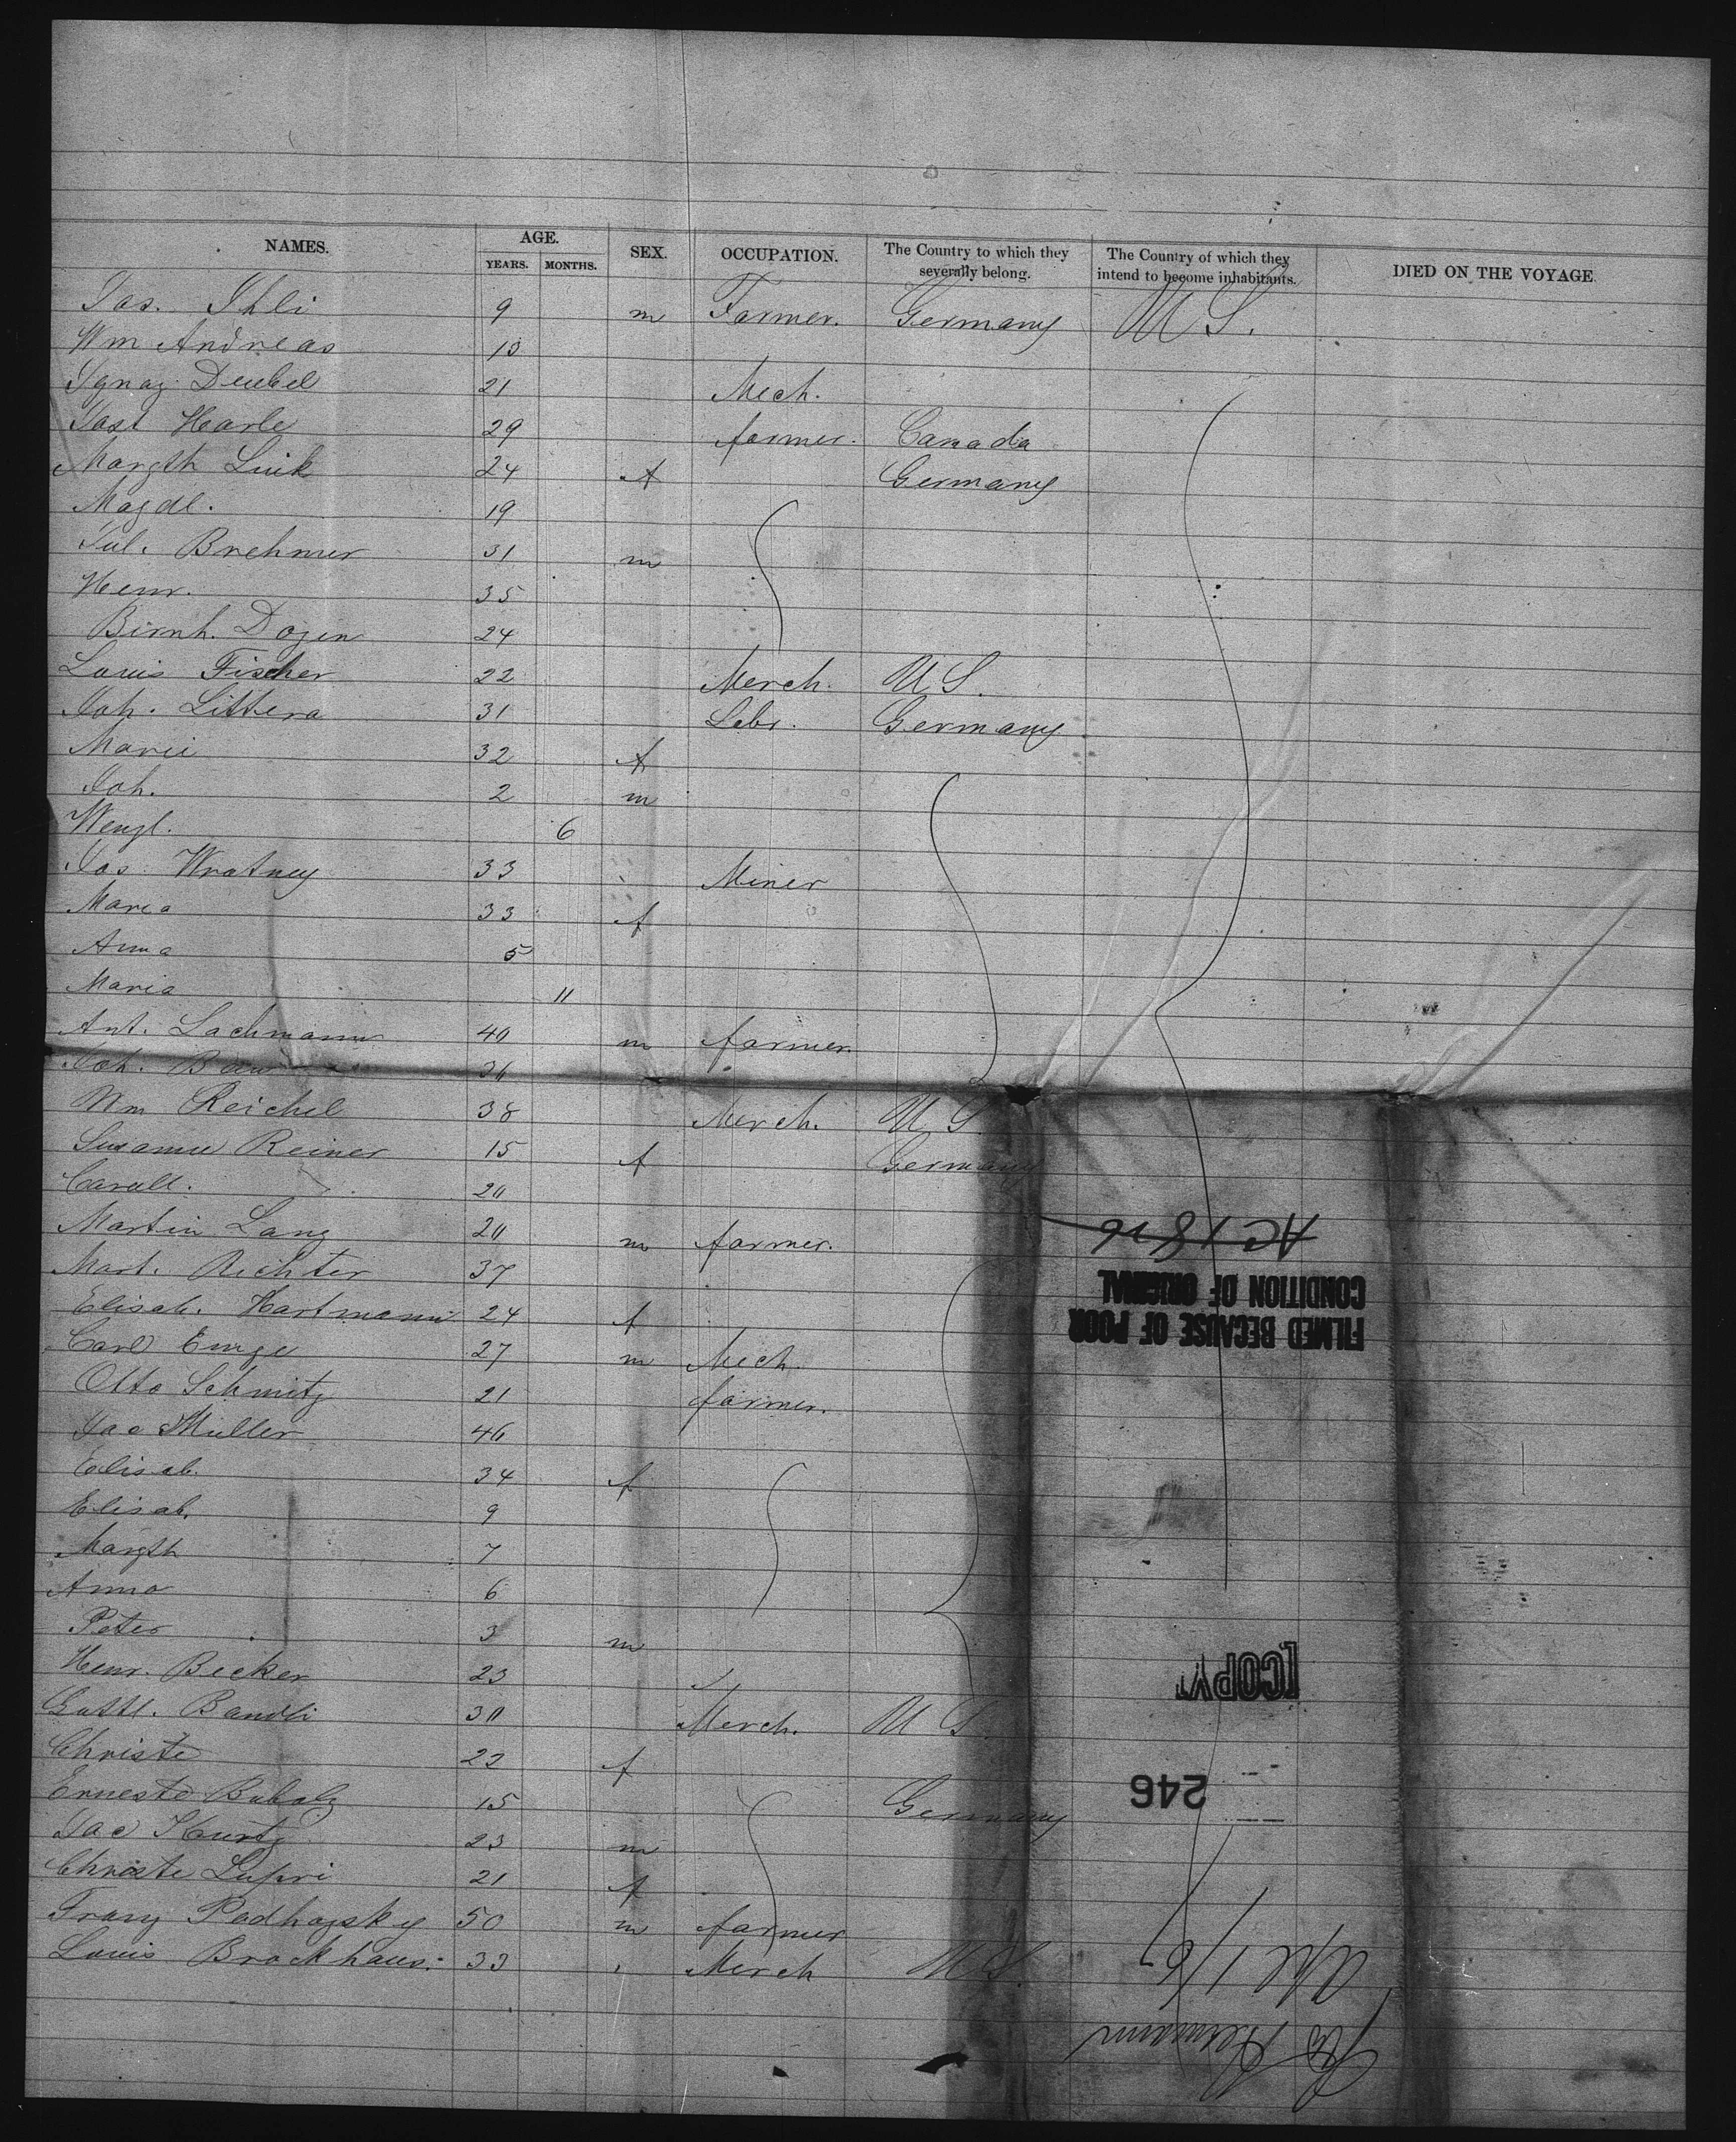 NAMES. AGE. SEX. OCCUPATION. The Country to which they severally belong. The Country of which they intend to become inhabitants. DIED ON THE VOYAGE.
YEARS. MONTHS.
Jos. Ihli 9 m Farmer. Germany U S.
Wm Andreas 10
Ignaz Deubel 21 Mech.
Jost Harle 29 farmer. Canada
Margth Luik 24 f Germany
Magdl. 19
Jul. Brehmer 31 m
Henr. 35
Birnh. Dozen 24
Louis Fischer 22 Merch. U S.
Joh. Littera 31 Labr. Germany
Marie 32 f
Joh. 2 m
Wenzl. 6
Jos. Wratney 33 Miner
Maria 33 f
Anna 5
Maria 11
Ant. Lachmann 40 m farmer.
Joh. 36
Wm Reichel 38 Merch. U S.
Susanne Reiner 15 f Germany
20
Martin Lang 20 m farmer.
Mart. Richter 37
Elisab. Hartmann 24 f
Carl Emge 27 m Mech.
Otto Schmitz 21 farmer.
Jac Müller 46
Elisab. 34 f
Elisab. 9
Margth 7
Anna 6
Peter 3 m
Henr. Becker 23
Gottl. Bandli 30 Merch. U S.
Christe 22 f
Erneste Bubolz 15 Germany
Jac Kurtz 23 m
Christe Lupri 21 f
Franz Podhazsky 50 m farmer
Louis Brockhaus. 33 Merch U S.
Apl 1/67
246
[COPY]
FILMED BECAUSE OF POOR
CONDITION OF ORIGINAL